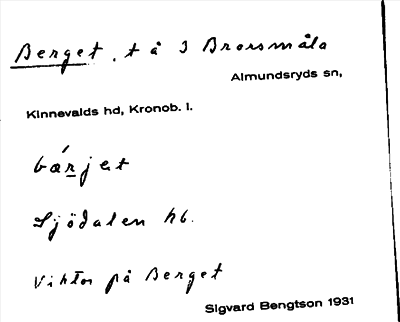 Berget. t å 3 Brorsmåla
Almundsryds sn,
Kinnevalds hd, Kronob. l.
bærjet
Sjödalen hb.
Viktor på Berget
Sigvard Bengtson 1931